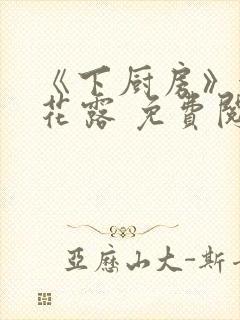 《下厨房》
花露 免費閱
亞歷山大-斯